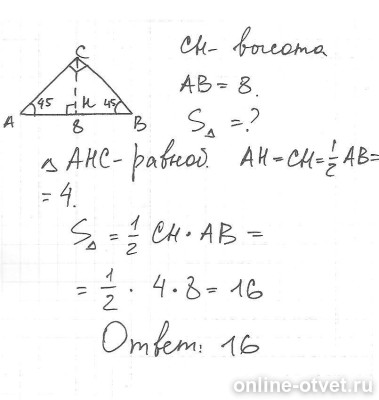 C
45 H 45
A 8 B
CH - высота
AB = 8.
S△ = ?
△ AHC - равноб. AH = CH = 1/2 AB =
= 4.
S△ = 1/2 CH · AB =
= 1/2 · 4 · 8 = 16
Ответ: 16
online-otvet.ru